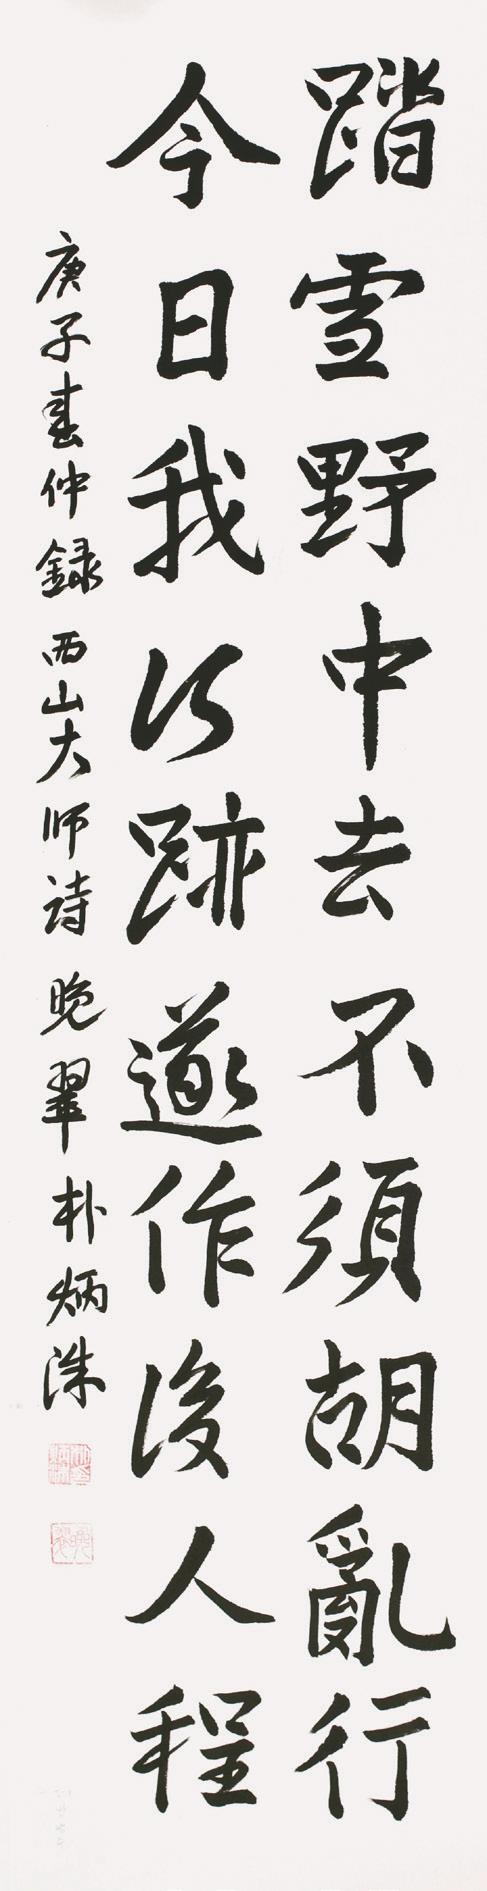 踏雪野中去不須胡亂行
今日我行跡遂作後人程
庚子春仲錄西山大师诗晚翠朴炳洙